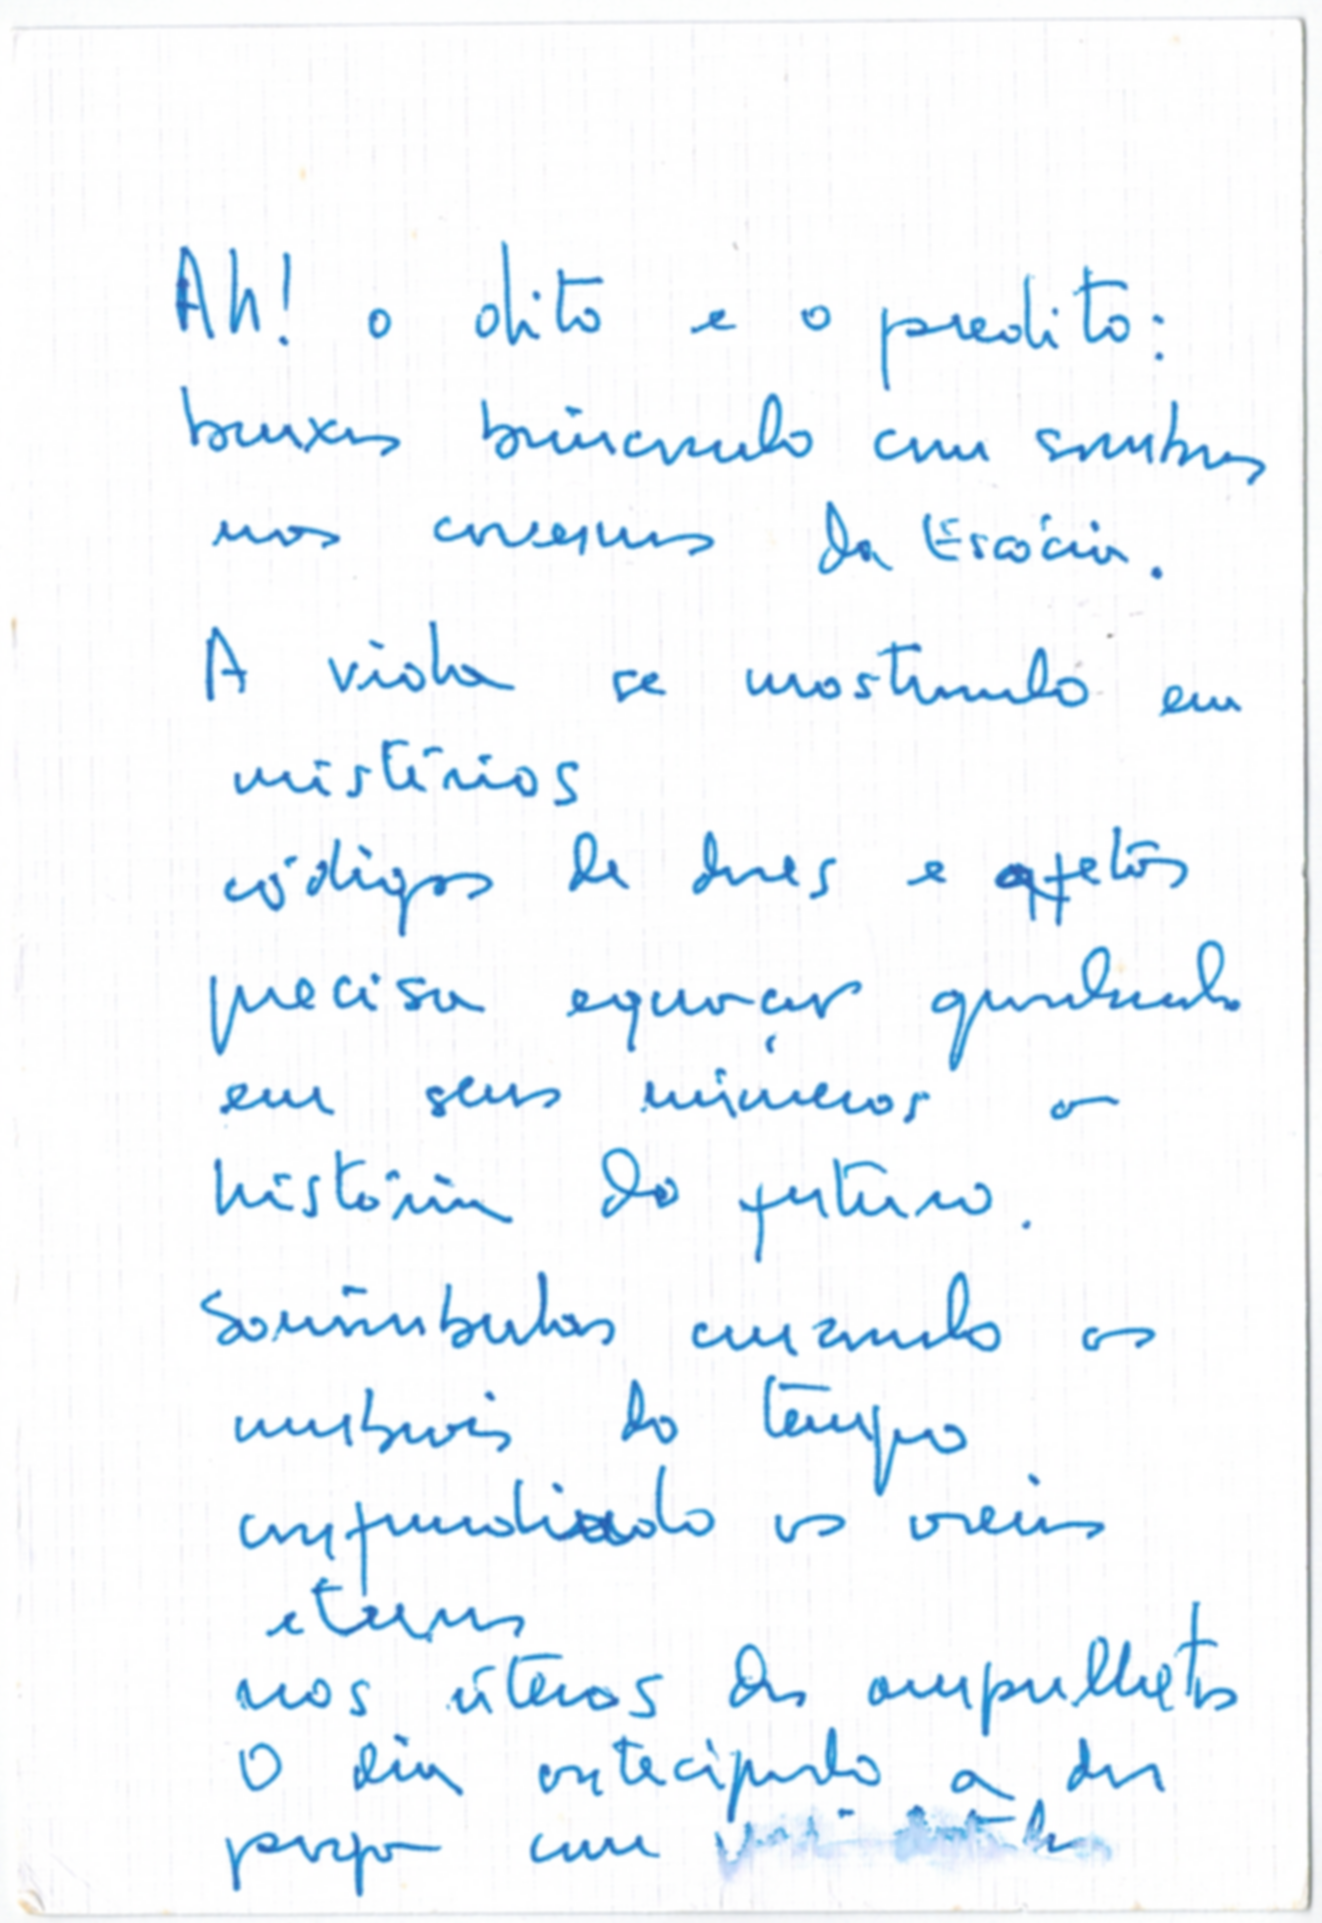 Ah! o dito e o predito:
bruxas brincando com sombras
nas cavernas da Escócia.
A vida se mostrando em
mistérios
códigos de dores e afetos
precisa equação guardando
em seus números a
história do futuro.
Sonâmbulos cruzando os
umbrais do tempo
confundindo as areias
eternas
nos úteros das ampulhetas
O dia antecipado a dor
paga com